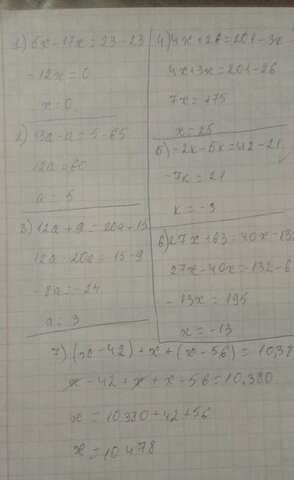 1) 5x-17x=23-23
-12x=0
x=0
2) 13a-a=5-65
12a=60
a=5
3) 12a+9=20a+15
12a-20a=15-9
-8a=-24
a=3
4) 4x+26=201-3x
4x+3x=201-26
7x=175
x=25
5) -2k-5k=42-21
-7k=21
k=-3
6) 27x+63=40x-132
27x-40x=132-6
-13x=195
x=-13
7) (x-42)+x+(x-56)=10,38
x-42+x+x-56=10,380
x=10380+42+56
x=10478